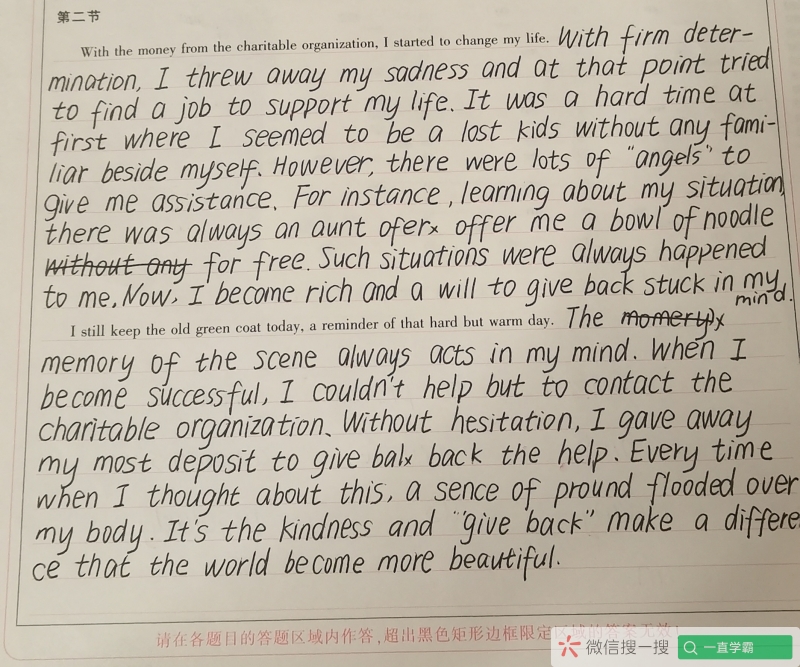 第二节
With the money from the charitable organization, I started to change my life. With firm deter-
mination, I threw away my sadness and at that point tried
to find a job to support my life. It was a hard time at
first where I seemed to be a lost kids without any fami-
liar beside myself. However, there were lots of "angels" to
give me assistance. For instance, learning about my situation,
there was always an aunt ofer offer me a bowl of noodle
without any for free. Such situations were always happened
to me. Now, I become rich and a will to give back stuck in my
mind.
I still keep the old green coat today, a reminder of that hard but warm day. The momery
memory of the scene always acts in my mind. When I
become successful, I couldn't help but to contact the
charitable organization. Without hesitation, I gave away
my most deposit to give bal back the help. Every time
when I thought about this, a sence of pround flooded over
my body. It's the kindness and "give back" make a differe
ce that the world become more beautiful.
请在各题目的答题区域内作答,超出黑色矩形边框限定区域的答案无效!
微信搜一搜 一直学霸